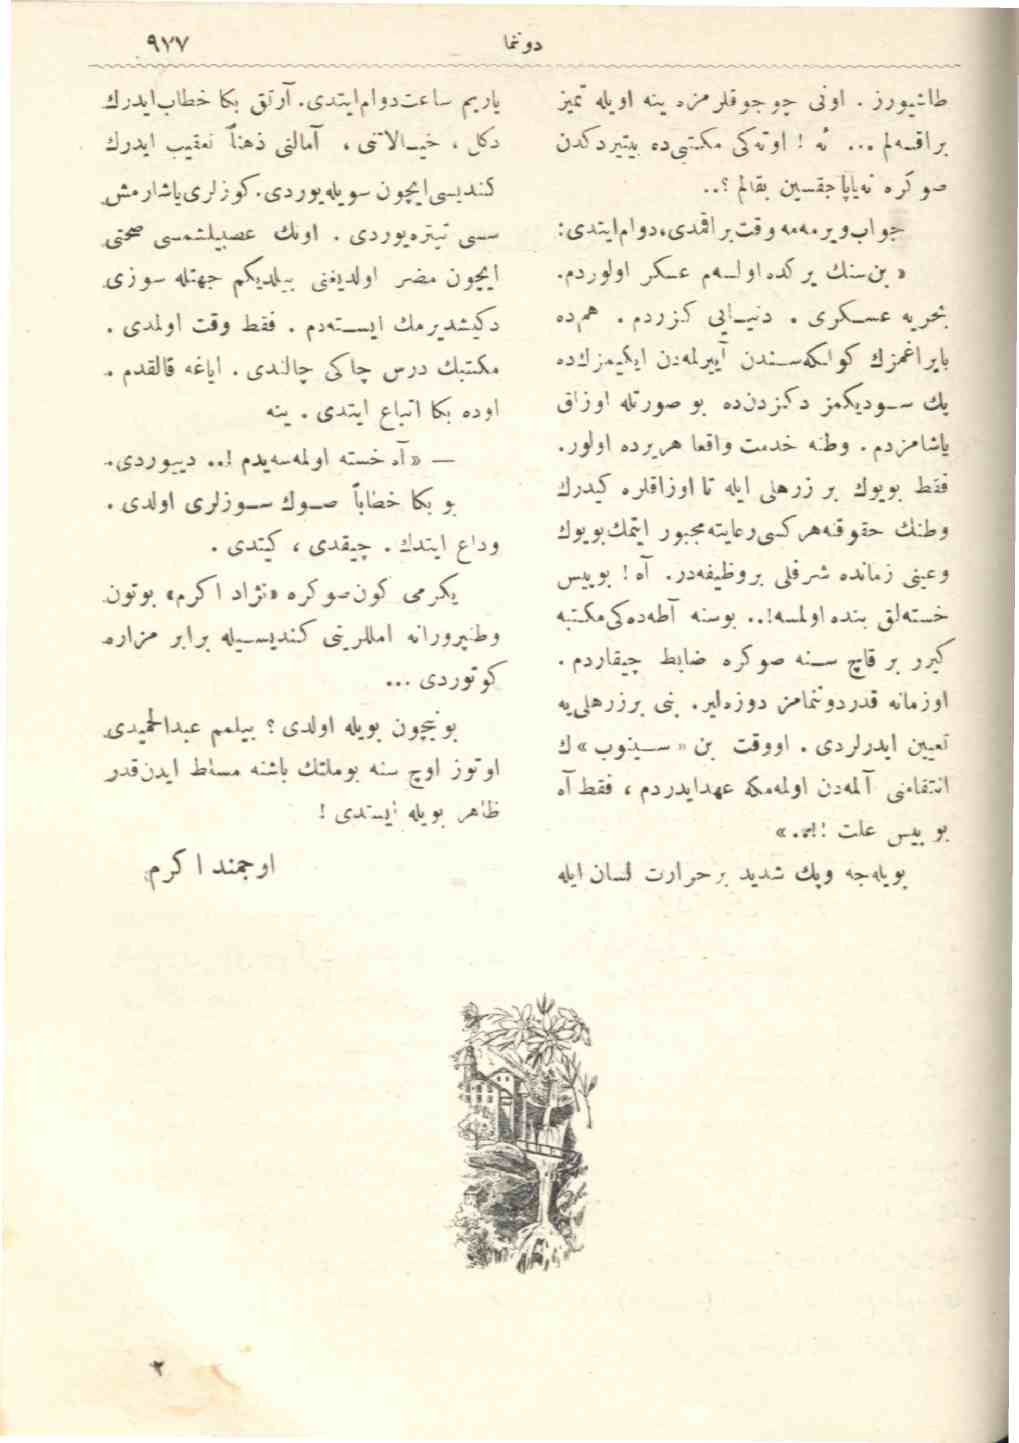 دوننما
٩٧٧
طاشیورز . اونی چوجوقلرمزه ینه اویله تمیز
براقسه‌لم ... ئه ! اوته‌کی مکتبی‌ده بیتیردکدن
صوکره نه‌یاپاجقسین بقالم ؟..
جواب ویرمه‌مه وقت براقمدی، دوام ایتدی :
« بن سنك یرکده اولسه‌م عسکر اولوردم.
بحریه عسکری . دنیایی کزردم . هم‌ده
بایراغمزك کولکه‌سندن آیرلمه‌دن ایکیمزك‌ده
پك سودیکمز دکزدن‌ده بو صورتله اوزاق
یاشامزدم . وطنه خدمت واقعا هر یرده اولور.
فقط بویوك بر زرهلی ایله تا اوزاقلره کیدرك
وطنك حقوقنه هرکسی رعایته مجبور ایتمك بویوك
وعینی زمانده شرفلی بر وظیفه‌در. آه ! بو پیس
خسته‌لق بنده اولمسه!.. بوسنه آطه‌ده‌کی مکتبه
کیرر بر قاچ سنه صوکره ضابط چیقاردم .
اوزمانه قدر دوننمامز دوزه‌لیر. بنی بر زرهلی‌یه
تعیین ایدرلردی . اووقت بن « سینوب »ك
انتقامنی آلمه‌دن اولمه‌مکه عهد ایدردم ، فقط آه
بو پیس علت !!.. »
بویله‌جه وپك شدید بر حرارت لسان ایله
یاریم ساعت دوام ایتدی. آرتق بکا خطاب ایدرك
دکل ، خیالاتنی ، آمالنی ذهناً تعقیب ایدرك
کندیسی ایچون سویله‌یوردی. کوزلری یاشارمش
سسی تیتره‌یوردی . اونك عصبیلشمسی صحتی
ایچون مضر اولدیغنی بیلدیکم جهتله سوزی
دکیشدیرمك ایسته‌دم . فقط وقت اولمدی .
مکتبك درس چاکی چالندی . ایاغه قالقدم .
اوده بکا اتباع ایتدی . ینه
— « آه خسته اولمه‌سه‌یدم !.. دییوردی.
بو بکا خطاباً صوك سوزلری اولدی .
وداع ایتدك . چیقدی ، کیتدی .
یکرمی کون صوکره «نژاد اکرم» بوتون
وطنپرورانه امللرینی کندیسیله برابر مزاره
کوتوردی ...
بو نیچون بویله اولدی ؟ بیلمم عبدالحمیدی
اوتوز اوچ سنه بوملتك باشنه مسلط ایدن قدر
ظاهر بویله ایستدی !
اوجمند اکرم
٢